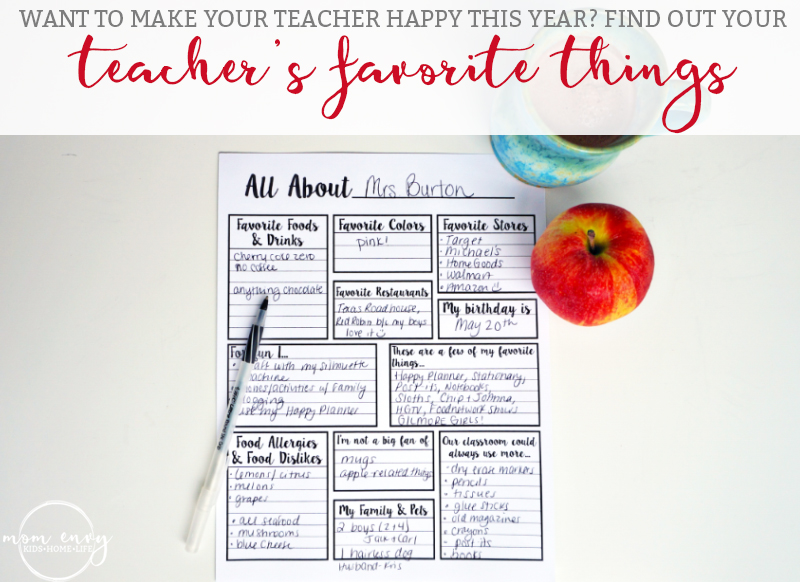 WANT TO MAKE YOUR TEACHER HAPPY THIS YEAR? FIND OUT YOUR
teacher's favorite things
All About Mrs Burton
Favorite Foods
& Drinks
cherry coke zero
no coffee
anything chocolate
Favorite Colors
pink!
Favorite Stores
· Target
· Michael's
· HomeGoods
· Walmart
· Amazon
Favorite Restaurants
Texas Roadhouse,
Red Robin b/c my boys
love it
My birthday is
May 20th
For Fun I...
with my Silhouette
/activities w/ Family
my Happy Planner
These are a few of my favorite
things...
Happy Planner, Stationary,
Post its, Notebooks,
Sloths, Chip + Joanna,
HGTV, Foodnetwork shows
GILMORE GIRLS!
Food Allergies
& Food Dislikes
· lemons/citrus
· melons
· grapes
· all seafood
· mushrooms
· blue cheese
I'm not a big fan of
mugs
apple related things
My Family & Pets
2 boys (2+4)
Carl
1 hairless dog
husband - Kris
Our classroom could
always use more...
· dry erase markers
· pencils
· tissues
· glue sticks
· old magazines
· crayons
· post its
· books
mom envy
KIDS-HOME-LIFE